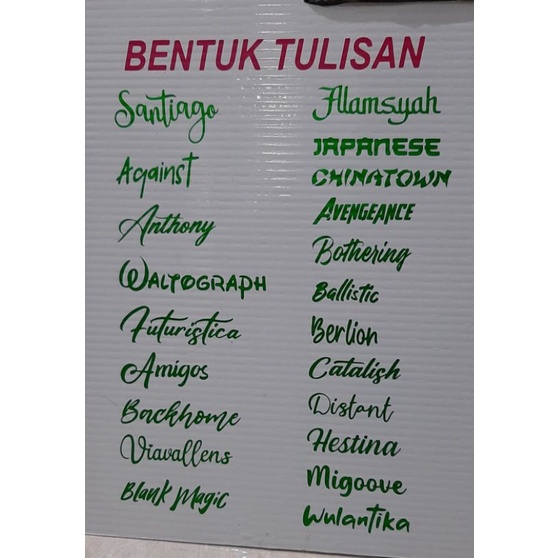 BENTUK TULISAN
Santiago
Against
Anthony
WALTOGRAPH
Futuristica
Amigos
Backhome
Viavallens
Blank Magic
Alamsyah
JAPANESE
CHINATOWN
AVENGEANCE
Bothering
Ballistic
Berlion
Catalish
Distant
Hestina
Migoove
Wulantika